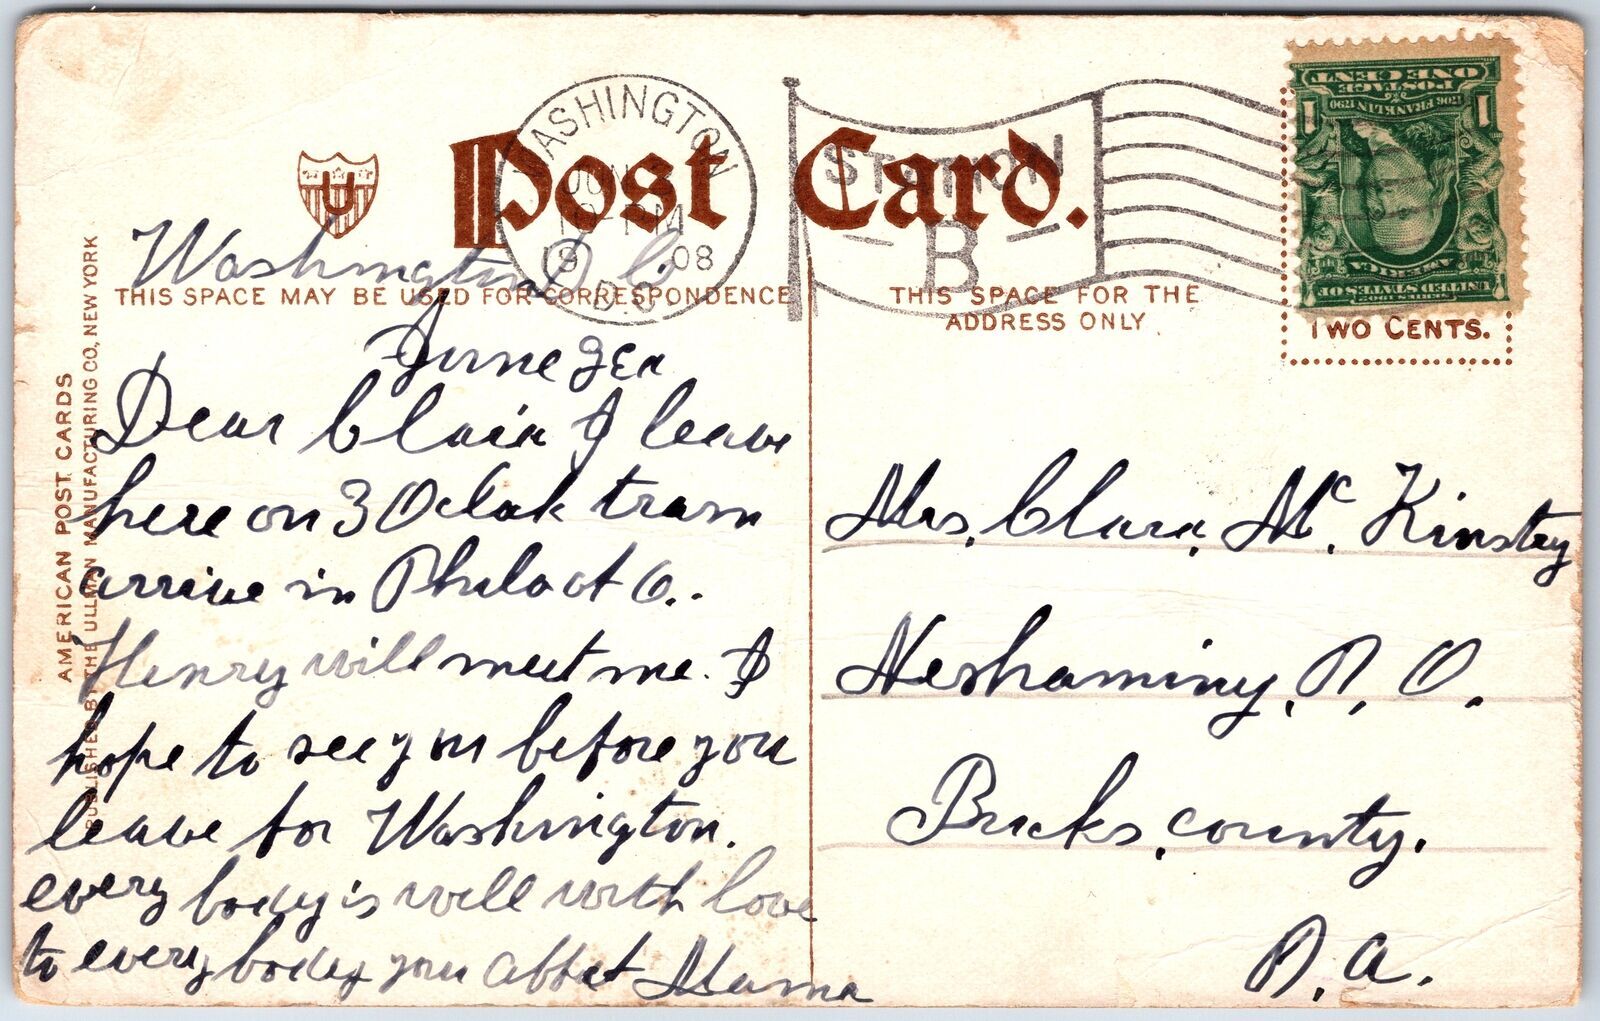 Post Card.
WASHINGTON
JUN
12-PM
19 08
D.C.
STATION
B
ONE CENT
POSTAGE
1706 FRANKLIN 1790
1 1
AMERICA
SERIES 1902
UNITED STATES OF
TWO CENTS.
U
THIS SPACE MAY BE USED FOR CORRESPONDENCE
THIS SPACE FOR THE
ADDRESS ONLY
AMERICAN POST CARDS
PUBLISHED BY THE ULLMAN MANUFACTURING CO, NEW YORK
Washington D C
June
Dear Clara I leave
here on 3 Oclok train
arrive in Phila at 6..
Henry will meet me. I
hope to see you before you
leave for Washington.
every body is well with love
to every body you Mama
Mrs. Clara, Mc. Kinstry
Neshaminy, P, O.
Bucks, county.
P. a.